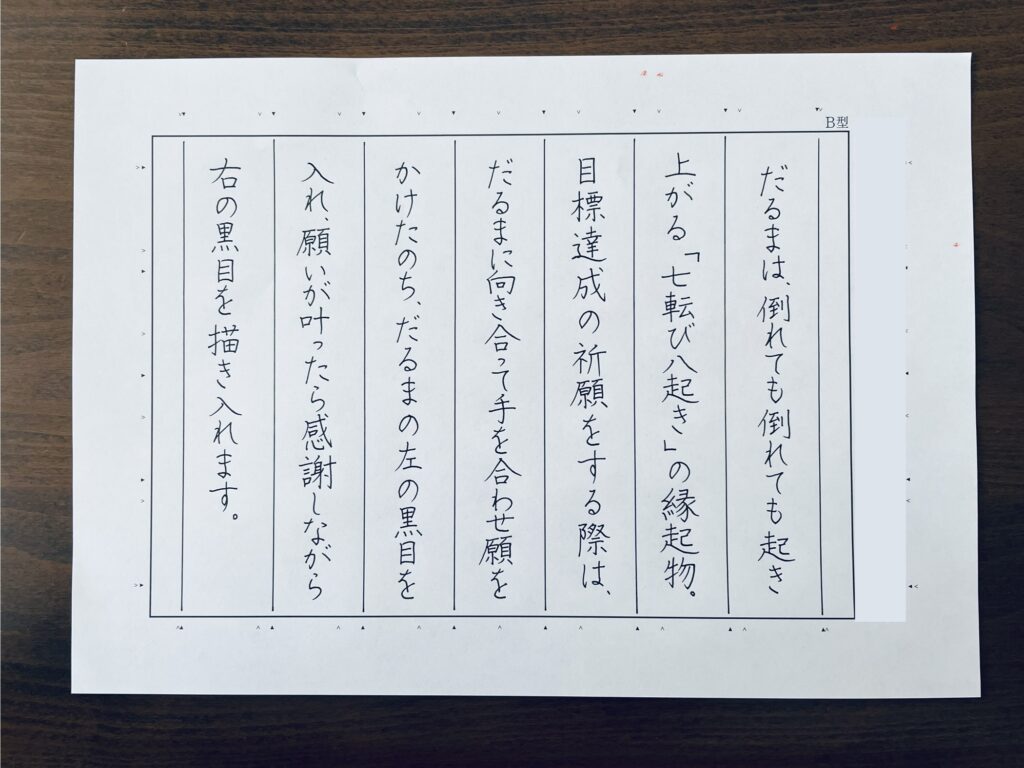 B型
だるまは、倒れても倒れても起き
上がる「七転び八起き」の縁起物。
目標達成の祈願をする際は、
だるまに向き合って手を合わせ願を
かけたのち、だるまの左の黒目を
入れ、願いが叶ったら感謝しながら
右の黒目を描き入れます。